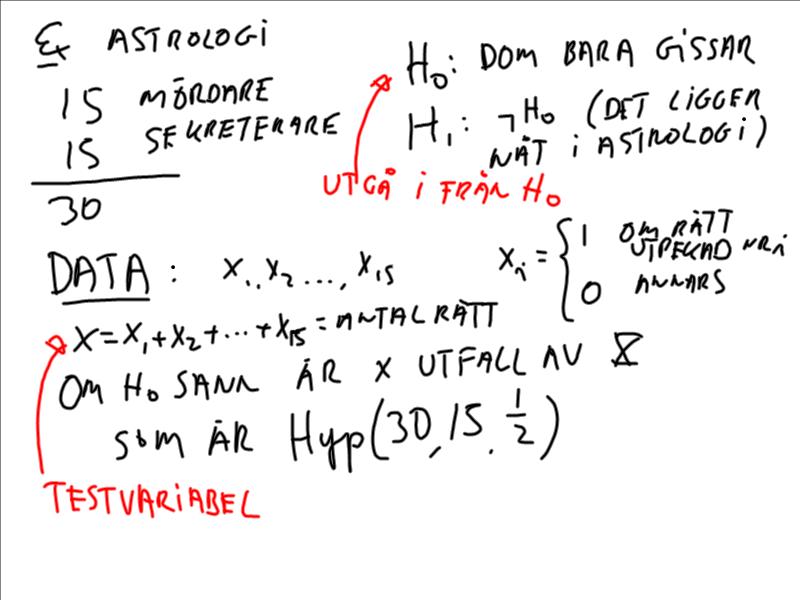 Ex ASTROLOGI
15 MÖRDARE
15 SEKRETERARE
30
H₀: DOM BARA GISSAR
H₁: ¬H₀ (DET LIGGER
NÅT I ASTROLOGI)
UTGÅ I FRÅN H₀
DATA: x₁, x₂ ..., x₁₅
xᵢ = { 1 OM RÄTT
UTPEKAD NR i
0 ANNARS
x = x₁ + x₂ + ... + x₁₅ = ANTAL RÄTT
OM H₀ SANN ÄR x UTFALL AV X
SOM ÄR Hyp(30, 15, 1/2)
TESTVARIABEL